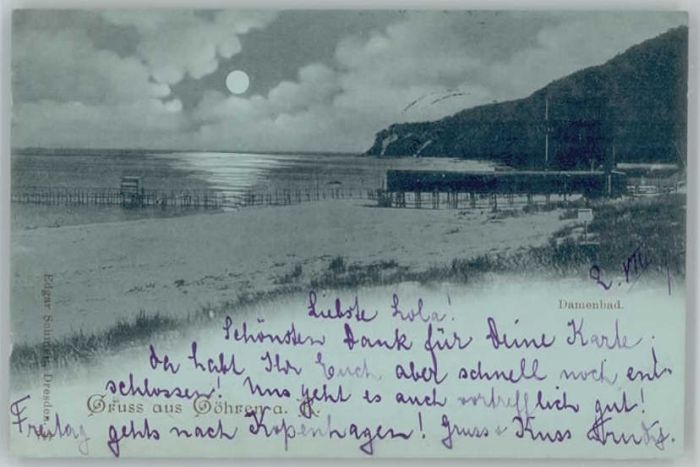 2. VII.
Damenbad.
Liebste Lola!
Schönsten Dank für Deine Karte.
Da habt Ihr Euch aber schnell noch ent-
schlossen! Uns geht es auch vortrefflich gut!
Gruss aus Göhren a. R.
Freitag gehts nach Kopenhagen! Gruss + Kuss Trudy.
Edgar Schmidt, Dresden.